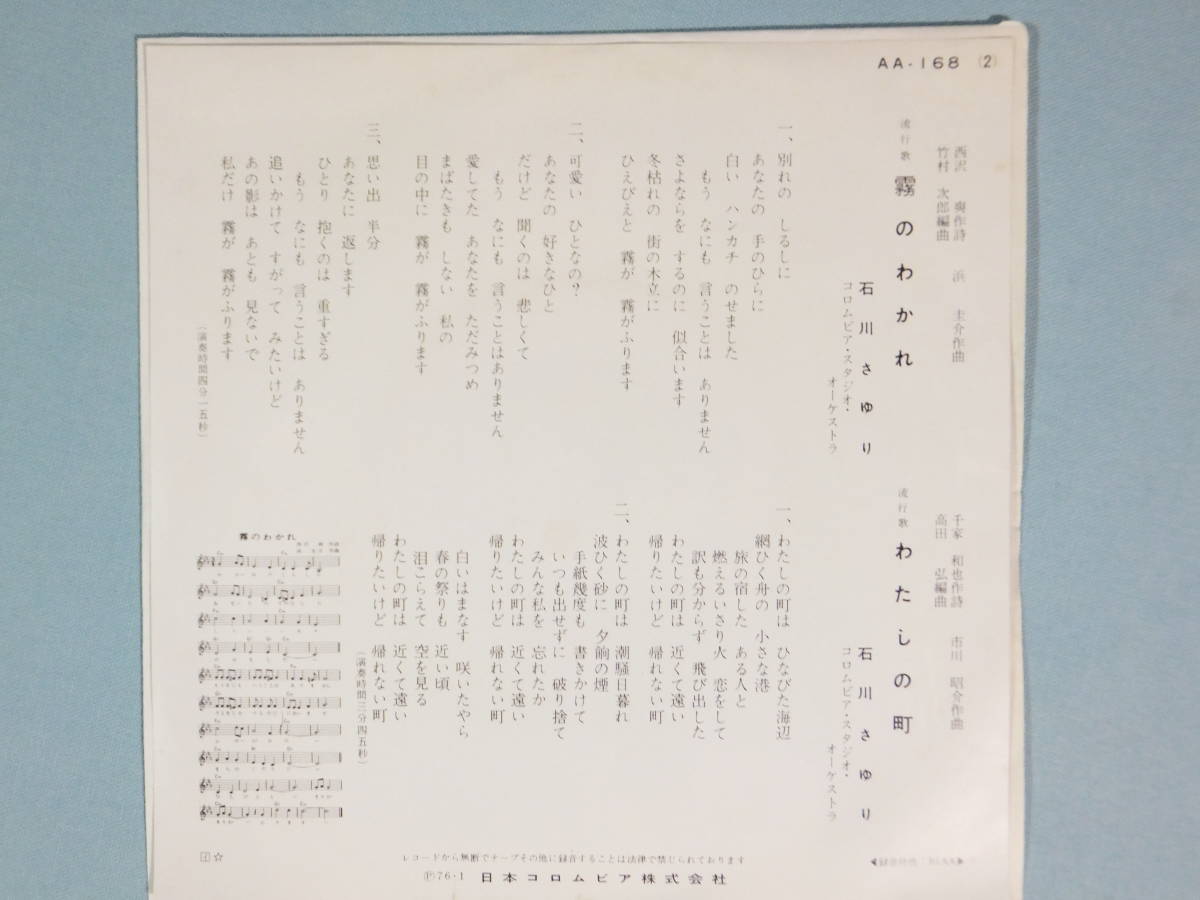 AA-168 (2)
西沢 爽作詩 浜 圭介作曲
竹村 次郎編曲
流行歌 霧のわかれ
石川さゆり
コロムビア・スタジオ・
オーケストラ
一、別れの しるしに
あなたの 手のひらに
白い ハンカチ のせました
もう なにも 言うことは ありません
さよならを するのに 似合います
冬枯れの 街の木立に
ひえびえと 霧が 霧がふります
二、可愛い ひとなの?
あなたの 好きなひと
だけど 聞くのは 悲しくて
もう なにも 言うことはありません
愛してた あなたを ただみつめ
まばたきも しない 私の
目の中に 霧が 霧がふります
三、思い出 半分
あなたに 返します
ひとり 抱くのは 重すぎる
もう なにも 言うことは ありません
追いかけて すがって みたいけど
あの影は あとも 見ないで
私だけ 霧が 霧がふります
(演奏時間四分一五秒)
千家 和也作詩 市川 昭介作曲
高田 弘編曲
流行歌 わたしの町
石川さゆり
コロムビア・スタジオ・
オーケストラ
一、わたしの町は ひなびた海辺
網ひく舟の 小さな港
旅の宿した ある人と
燃えるいさり火 恋をして
訳も分からず 飛び出した
わたしの町は 近くて遠い
帰りたいけど 帰れない町
二、わたしの町は 潮騒日暮れ
波ひく砂に 夕餉の煙
手紙幾度も 書きかけて
いつも出せずに 破り捨て
みんな私を 忘れたか
わたしの町は 近くて遠い
帰りたいけど 帰れない町
白いはまなす 咲いたやら
春の祭りも 近い頃
泪こらえて 空を見る
わたしの町は 近くて遠い
帰りたいけど 帰れない町
(演奏時間三分四五秒)
霧のわかれ
レコードから無断でテープその他に録音することは法律で禁じられております
Ⓟ76・1 日本コロムビア株式会社